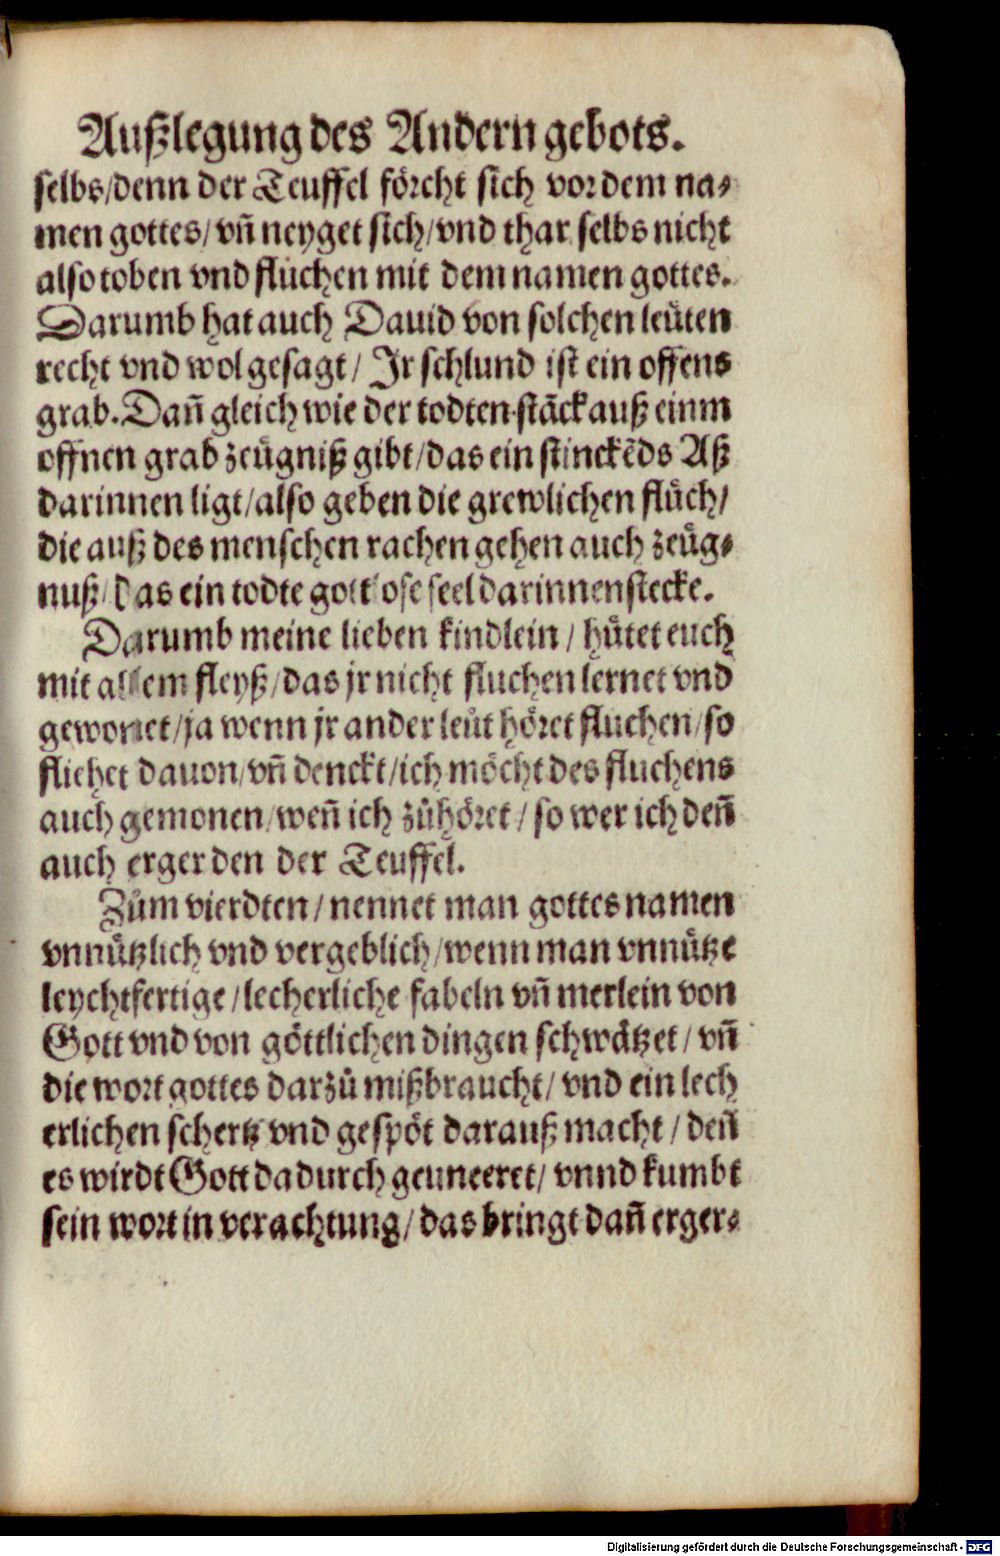 Außlegung des Andern gebots.
selbs/denn der Teuffel förcht sich vor dem na⸗
men gottes/ vñ neyget sich/vnd thar selbs nicht
also toben vnd fluchen mit dem namen gottes.
Darumb hat auch Dauid von solchen leüten
recht vnd wol gesagt/ Jr schlund ist ein offens
grab. Dañ gleich wie der todten stäck auß einm
offnen grab zeügniß gibt/das ein stinckẽds Aß
darinnen ligt/also geben die grewlichen flüch/
die auß des menschen rachen gehen auch zeüg⸗
nuß/das ein todte gottlose seel darinnen stecke.
Darumb meine lieben kindlein/ hütet euch
mit allem fleyß/das jr nicht fluchen lernet vnd
gewonet/ja wenn jr ander leüt höret fluchen/so
fliehet dauon/vñ denckt/ich möcht des fluchens
auch gewonen/weñ ich zůhöret/ so wer ich deñ
auch erger den der Teuffel.
Zům vierdten/ nennet man gottes namen
vnnützlich vnd vergeblich/wenn man vnnütze
leychtfertige/lecherliche fabeln vñ merlein von
Gott vnd von göttlichen dingen schwätzet/ vñ
die wort gottes darzů mißbraucht/ vnd ein lech
erlichen schertz vnd gespöt darauß macht/ deñ
es wirdt Gott dadurch geuneeret/ vnnd kumbt
sein wort in verachtung/das bringt dañ erger⸗
Digitalisierung gefördert durch die Deutsche Forschungsgemeinschaft - DFG